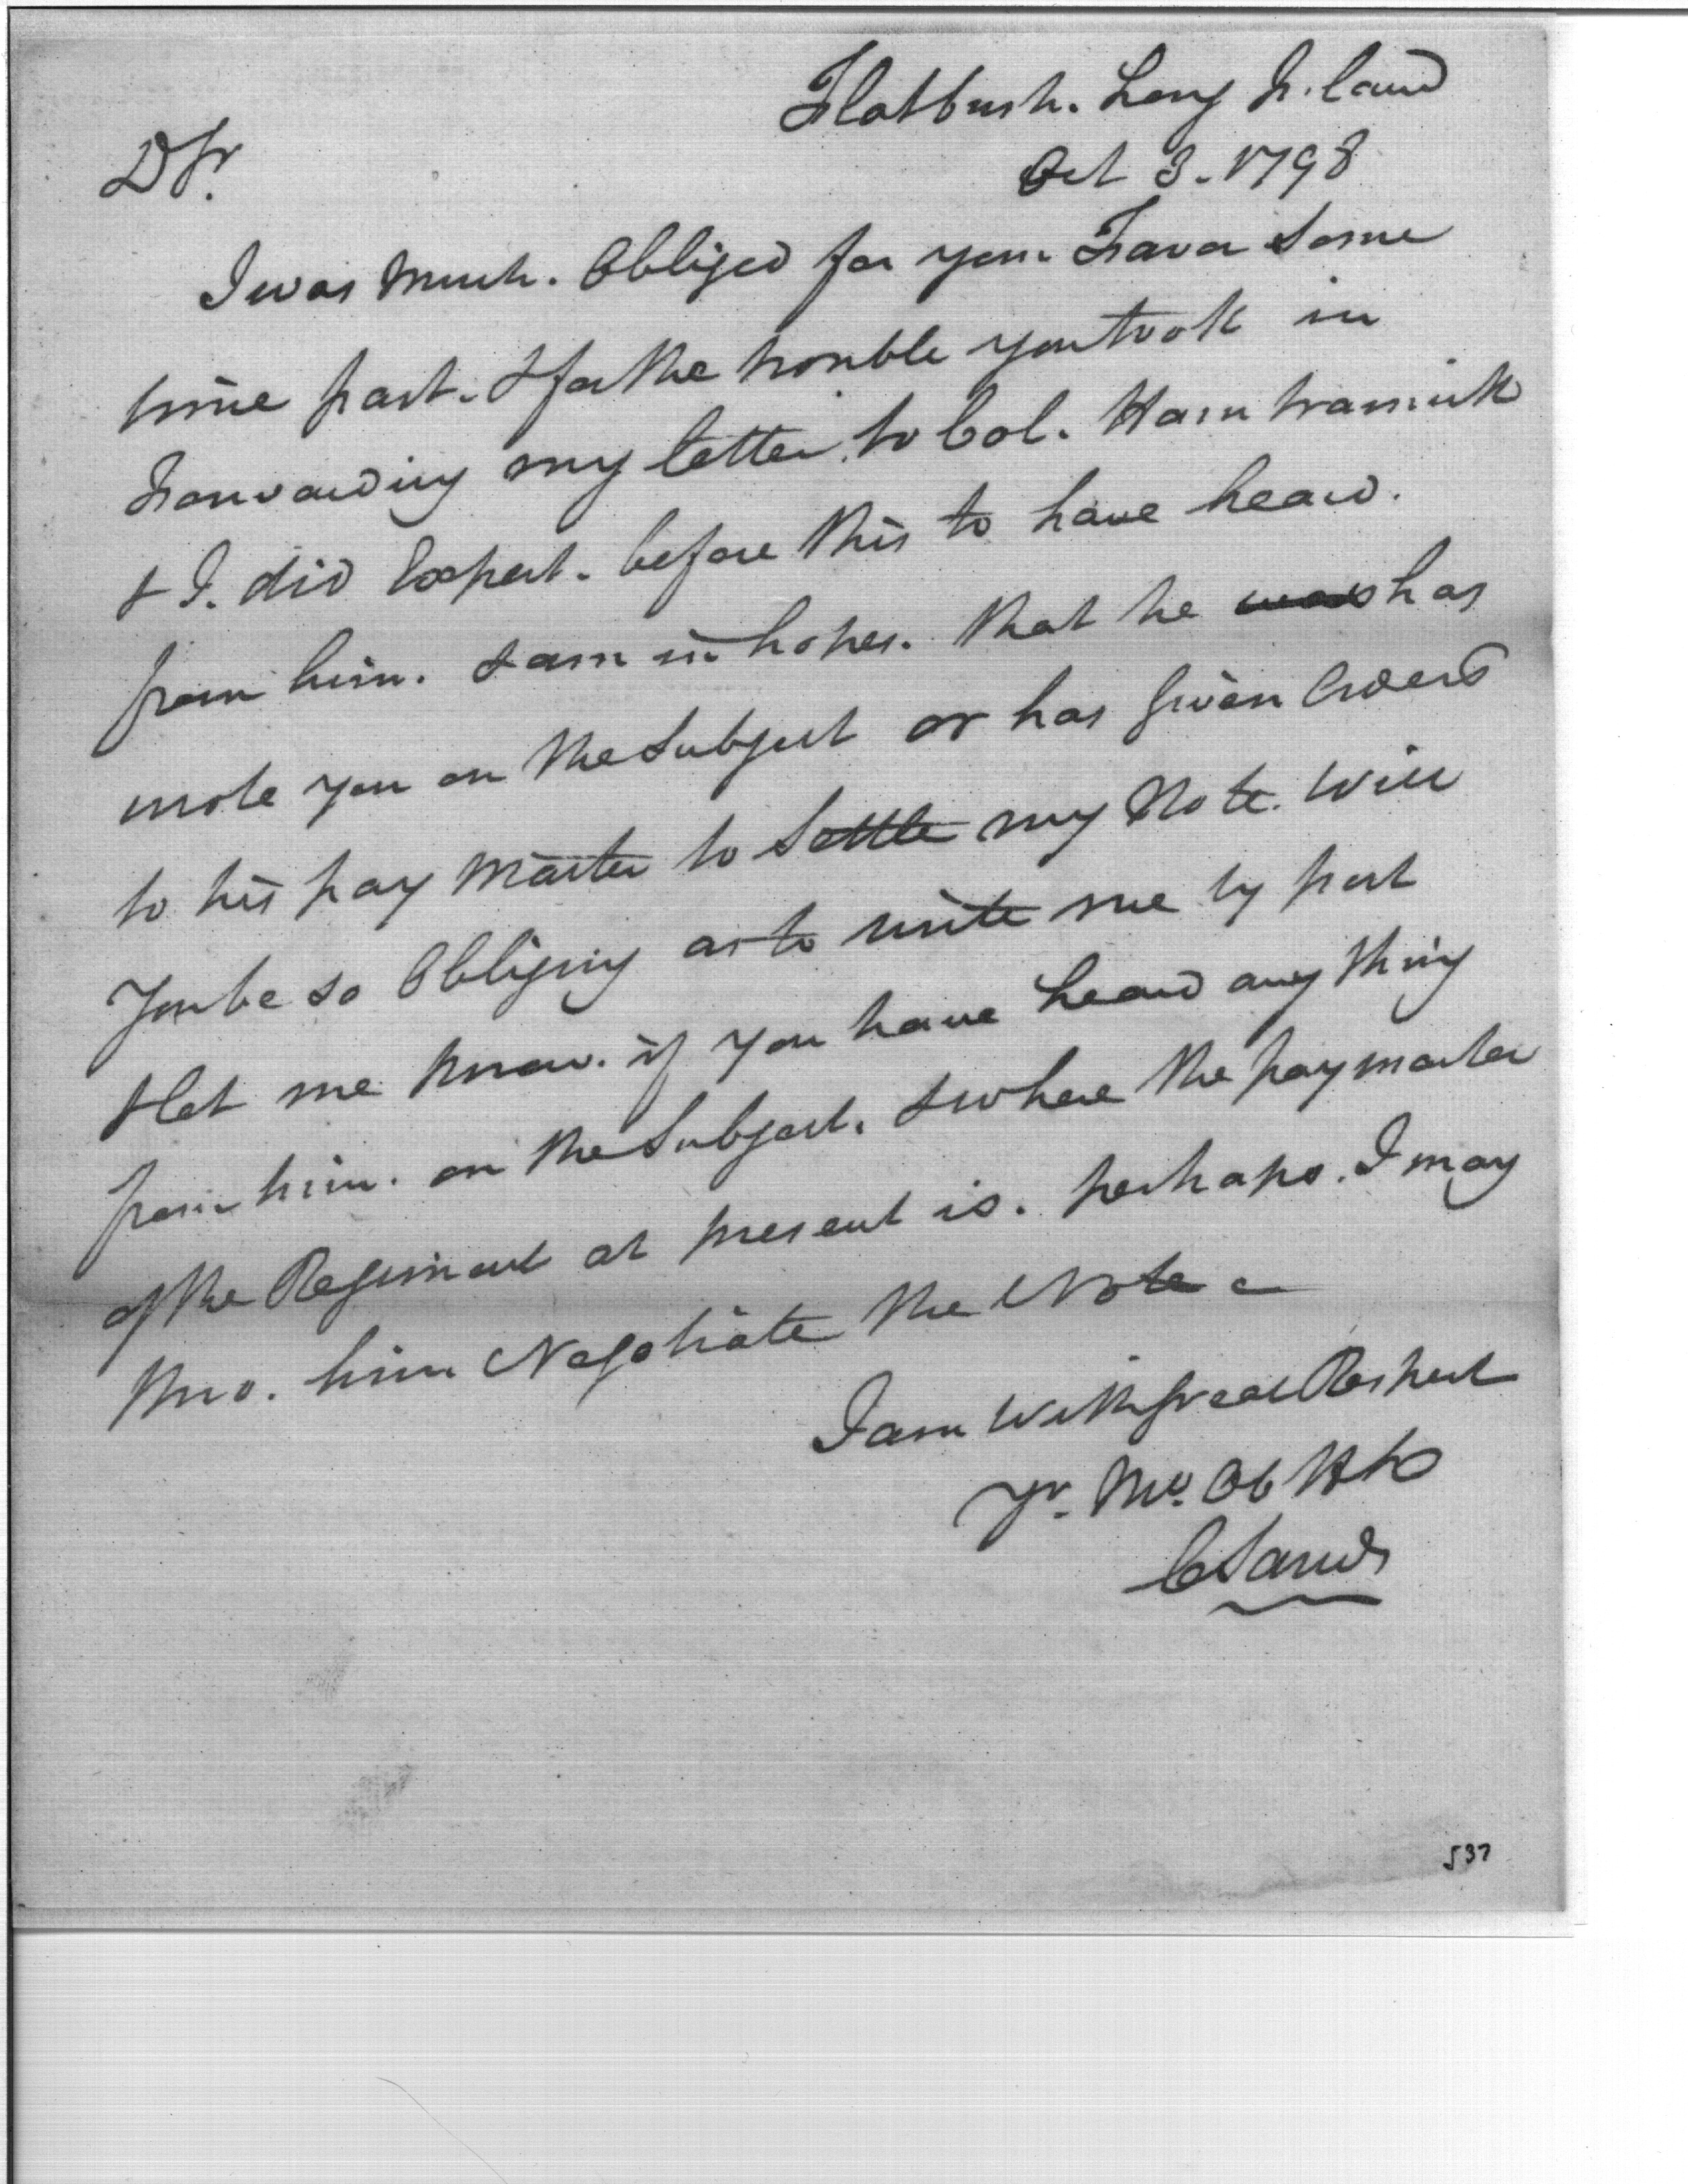 Flatbush. Long Island
Oct 3. 1798
D Sr.
I was Much. Obliged for your Favor Some
time past. & for the trouble you took in
Forwarding my letter to Col. Hamtramick
& I. did Expect. before this to have heard.
from him. & am in hopes. that he was has
wrote you on the Subject or has given Orders
to his pay Master to Settle my Note. Will
You be so Obliging as to write me by post
& let me know. if you have heard any thing
from him. on the Subject. & where the paymaster
of the Regiment at present is. perhaps. I may
thro. him Negotiate the Note
I am With great Respect
Yr. Mo. Ob
C Sands
537